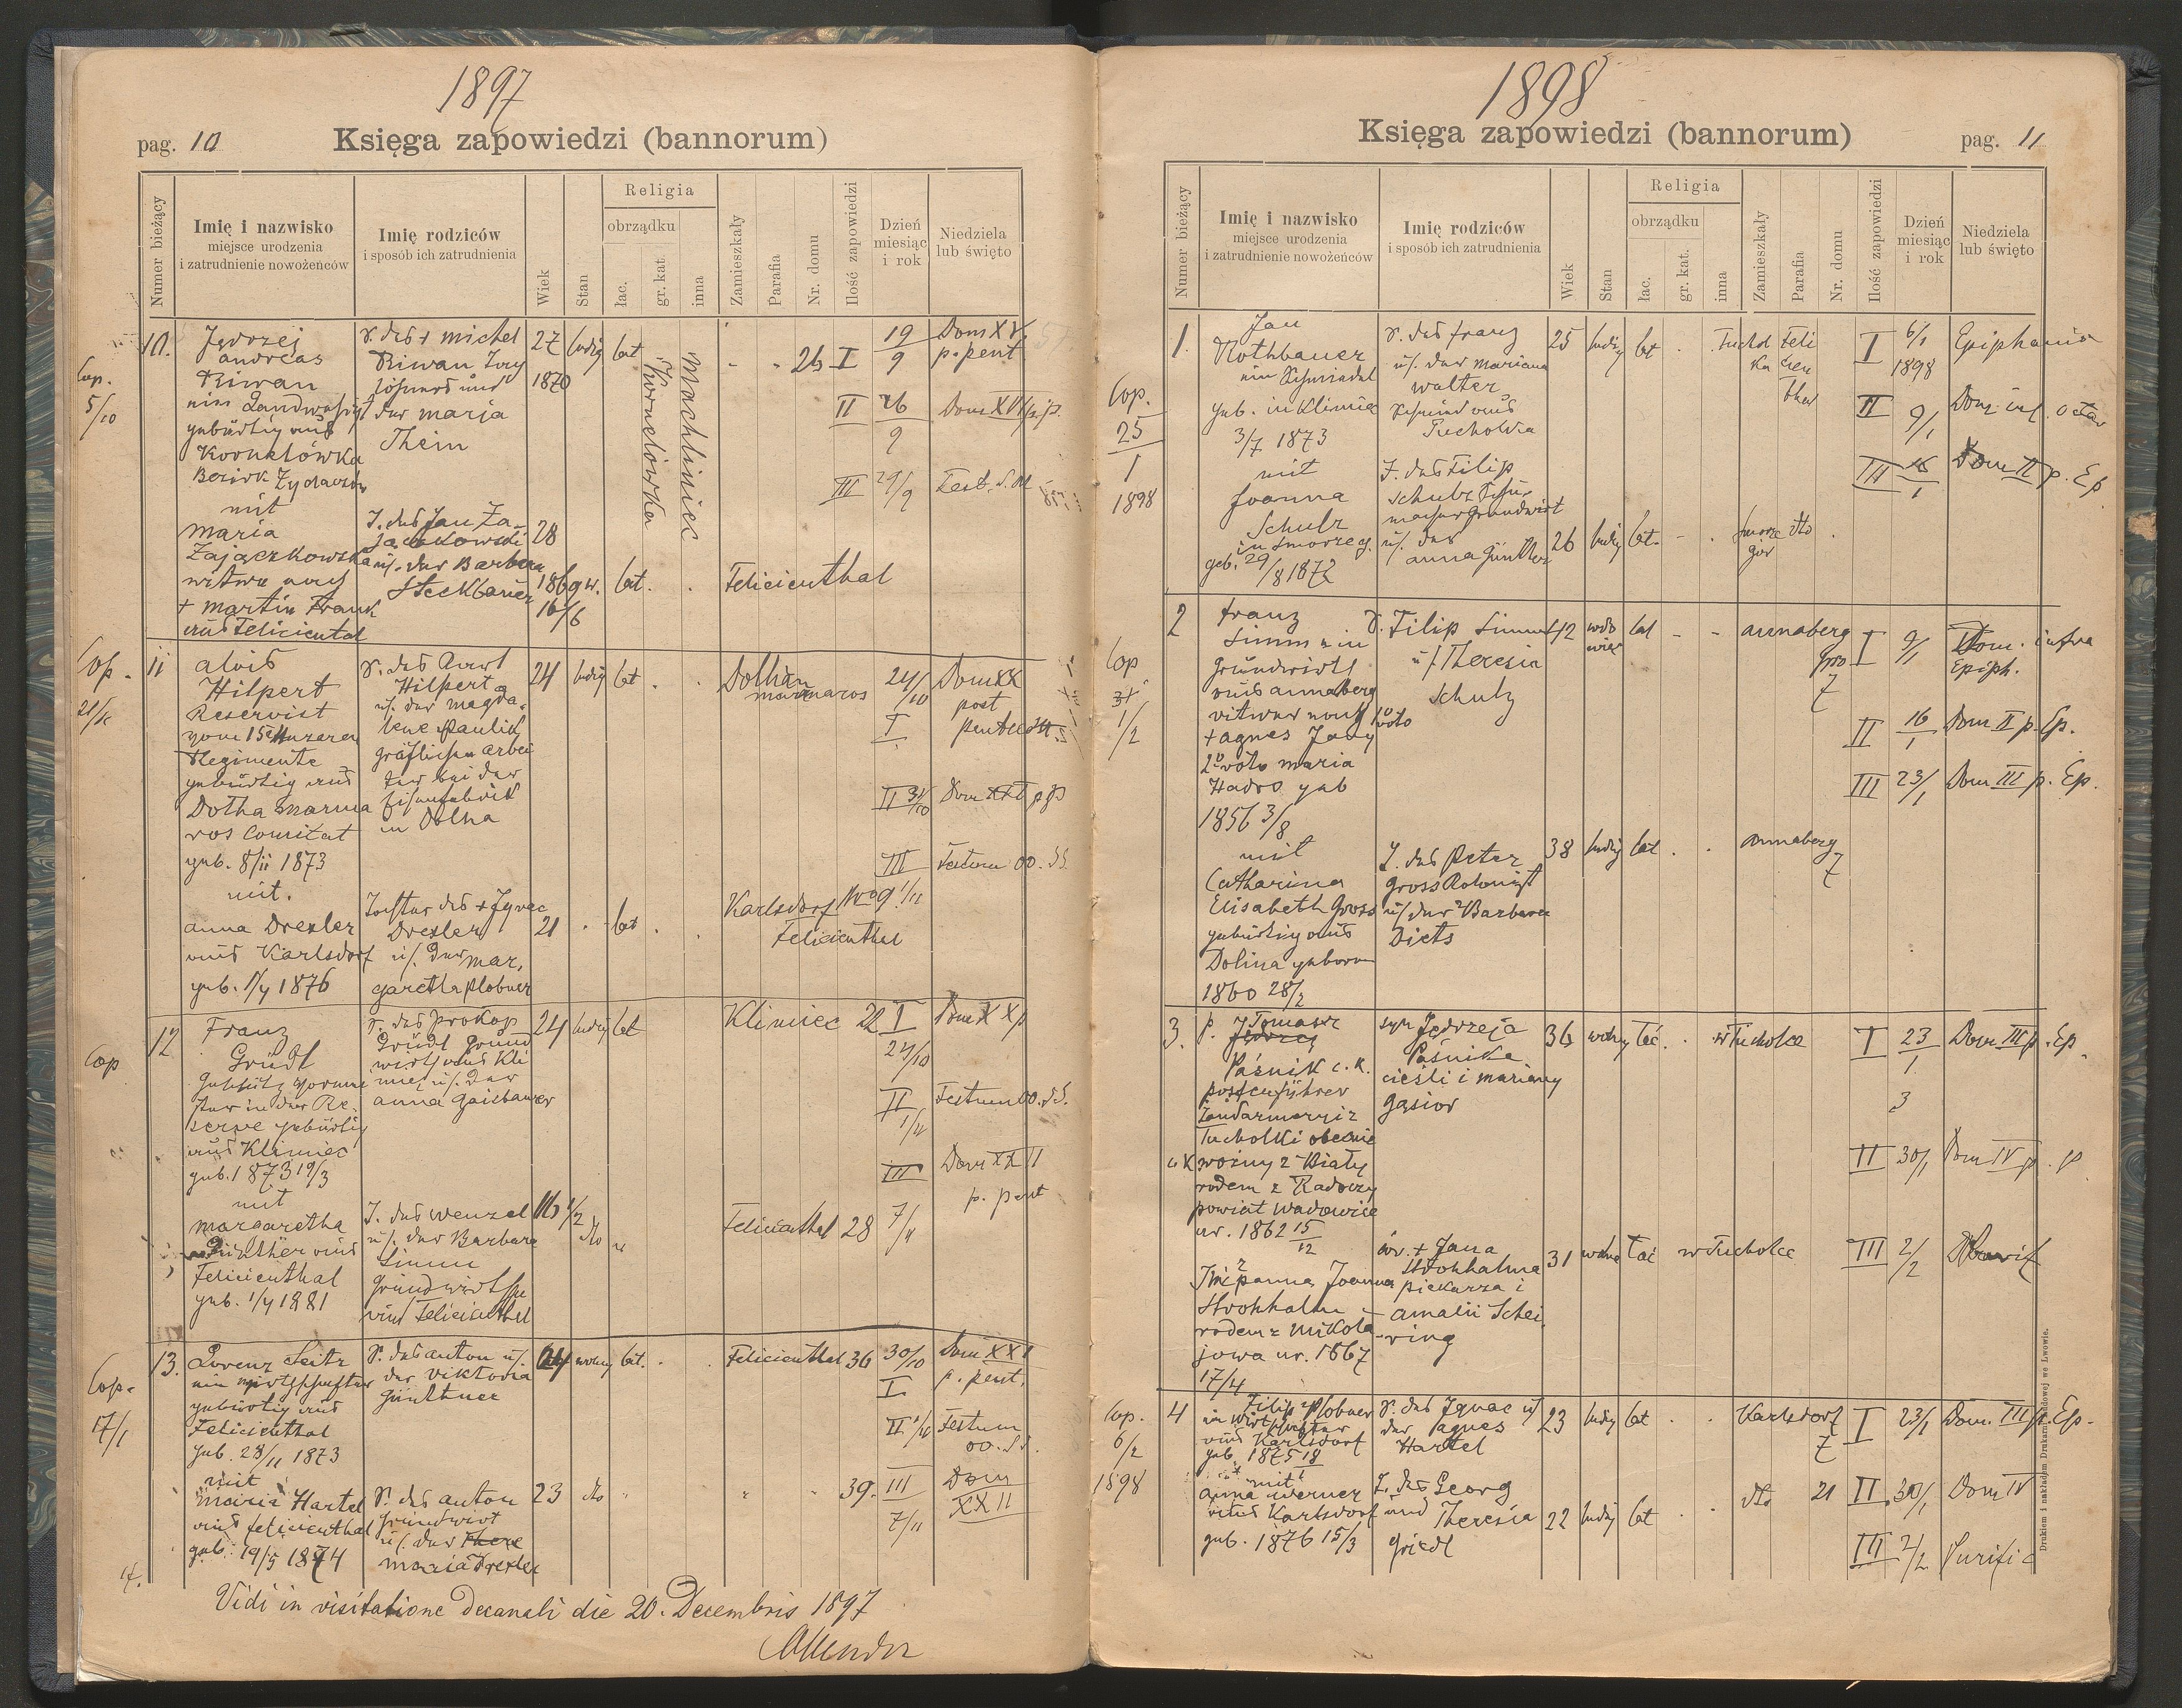 1897
pag. 10
Księga zapowiedzi (bannorum)
Numer bieżący
Imię i nazwisko
miejsce urodzenia
i zatrudnienie nowożeńców
Imię rodziców
i sposób ich zatrudnienia
Wiek
Stan
Religia
obrządku
łac.
gr. kat.
inna
Zamieszkały
Parafia
Nr. domu
Ilość zapowiedzi
Dzień
miesiąc
i rok
Niedziela
lub święto
Cop.
5/10
10.
Jędrzej
andreas
Kiwan
gebürtig aus
Kornelówka
Bezirk Żydaczów
mit
Maria
Zajączkowska
witwe nach
+ Martin Frank
aus Felicienthal
S. des + Michel
Kiwan
und
der Maria
Thein
T. des Jan Za-
jączkowski
u. der Barbara
Steckbauer
27
1870
28
1869 w.
16/6
ledig
lat
lat.
Kornelówka
Machliniec
Felicienthal
26
I
19
9
Dom XV
p. pent
II
26
9
Dom XVI p. p.
III
29/9
Fest. S. M
Cop.
11
alois
Hilpert
Reservist
vom 15 Huzaren
Regimente
gebürtig aus
Dolha Marma
ros Comitat
geb. 8/11 1873
mit.
anna Drexler
aus Karlsdorf
geb. 1/4 1876
Hilpert
u. der Magda-
lene Paulik
gräflichen Arbei
ter bei der
Eisenfabrik
in Dolha
Tochter des + Ignac
Drexler
u. der Mar,
garetha Plobner
24
ledig
lat
21
lat
Dolha
marmaros
Karlsdorf No 9 1/11
Felicienthal
24/10
I
Dom XX
post
pentecost.
II 31/10
Dom XXI p p
III
Festum OO. SS.
Cop
12
Franz
Gründl
ster in der Re-
serve gebürtig
aus Klimiec
geb. 1873 19/3
mit
Margaretha
Günthër aus
Felicienthal
geb. 1/4 1881
S. des Prokop
Gründl Grund
wirth aus Kli
miec u. der
anna Gaisbauer
T. des Wenzel
u. der Barbara
Simm
Grundwirthe
aus Felicienthal
24
ledig
lat
16 1/2
dto
Klimiec
22
I
24/10
Dom XX p
II
1/11
Festum OO. SS.
III
Dom XXII
p. pent
7/11
Felicienthal 28
Cop.
17/1
13.
Lorenz Seitz
ein Wirthschafter
gebürtig aus
Felicienthal
geb. 28/11 1873
mit
Maria Hartel
aus Felicienthal
geb. 19/5 1874
S. des anton u.
der Viktoria
Günthner
T. des anton
Grundwirt
u. der There
maria Drexler
24
wolny
lat.
23
dto
Felicienthal 36
30/10
I
Dom XXI
p. pent.
II 1/11
Festum
OO. SS.
39.
III
7/11
Dom
XXII
Vidi in visitatione decanali die 20. Decembris 1897
1898
Księga zapowiedzi (bannorum)
pag. 11
Numer bieżący
Imię i nazwisko
miejsce urodzenia
i zatrudnienie nowożeńców
Imię rodziców
i sposób ich zatrudnienia
Wiek
Stan
Religia
obrządku
łac.
gr. kat.
inna
Zamieszkały
Parafia
Nr. domu
Ilość zapowiedzi
Dzień
miesiąc
i rok
Niedziela
lub święto
Cop.
25
1
1898
1.
Jan
Rothbauer
geb. in Klimiec
3/7 1873
mit
Joanna
Schulz
in Smorze g.
geb. 29/8 1872
S. des Franz
u. der Mariana
Walter
Tucholka
T. des Filip
Schulz
Grundwirt
u. der
anna Günther
25
ledig
lat
26
ledig
lat.
Tuchol
ka
Feli
cien
thal
Smorze
gor
dto
I
6/1
1898
Epiphania
II
9/1
Dom inf. octav
III
16
1
Dom II p. Ep
Cop
31
1/2
2
Franz
Simm ein
Grundwirth
aus annaberg
witwer nach 1o voto
+ agnes Jany
2o voto maria
Hadro geb
1856 3/8
mit
Catharina
Elisabeth Gross
gebürtig aus
Dolina geboren
1860 28/2
S. Filip Simm
u. Theresia
Schulz
T. des Peter
Gross Kolonist
u. der Barbara
Diets
42
wdo
wiec
lat
38
ledig
lat
annaberg
7
annaberg
7
I
9/1
Dom. infra
Epiph.
II
16
1
Dom II p. Ep.
III
23/1
Dom III p. Ep.
3.
p. Tomasz
Jędrzej
Paśnik c. k.
postenführer
Żandarmeryi z
Tucholki obecnie
wolny z Biały
rodem z Radoczy
powiat Wadowice
ur. 1862 15/12
z
panna Joanna
Strohhalm
rodem z Mikoła-
jowa ur. 1867
17/4
syn Jędrzeja
Paśnika
cieśli i Maryany
Gąsior
cór. + Jana
Strohhalma
piekarza i
Amalii Schei-
ring
36
wolny
łać.
31
wolna
łać
w Tucholce
w Tucholce
I
23
1
Dom III p. Ep.
II
30/1
Dom IV p. p
III
2/2
Cop.
6/2
1898
4
Filip Plobner
aus Karlsdorf
geb. 1875 18/1
mit
anna Werner
aus Karlsdorf
geb. 1876 15/3
S. des Ignac u.
der agnes
Hartel
T. des Georg
und Theresia
Griedl
23
ledig
lat
22
ledig
lat
Karlsdorf
7
dto
21
I
23/1
Dom. III p. Ep.
II
30/1
Dom IV
III
2/2
Purific
Drukiem i nakładem Drukarni Ludowej we Lwowie.